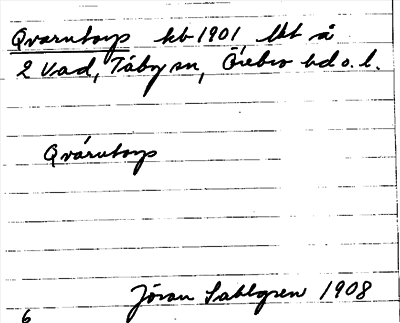 Qvarntorp kb 1901, lht å
2 Vad, Täby sn, Örebro hd o. l.
Qvárntorp
Jöran Sahlgren 1908
6